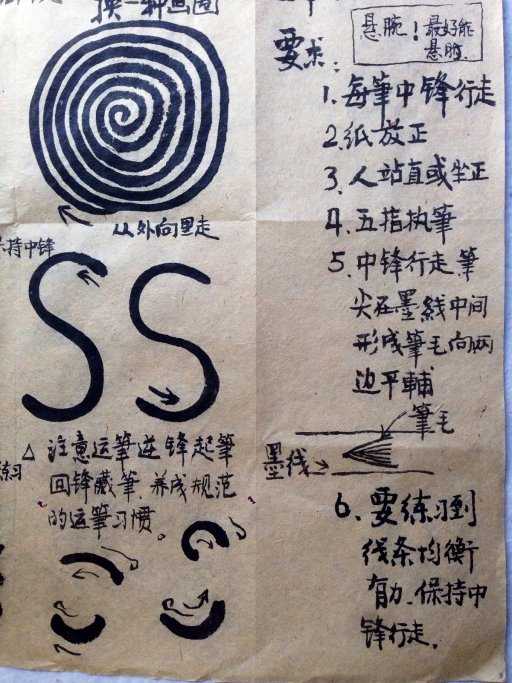 换一种画圈
从外向里走
持中锋
△ 注意运筆逆锋起筆
回锋藏筆.养成规范
的运筆习惯。
练习
悬腕！最好能
悬肘.
要求:
1. 每筆中锋行走
2. 纸放正
3. 人站直或坐正
4. 五指执筆
5. 中锋行走.筆
尖在墨线中间
形成筆毛向两
边平輔
筆毛
墨线
6. 要练习到
线条均衡
有力.保持中
锋行走.